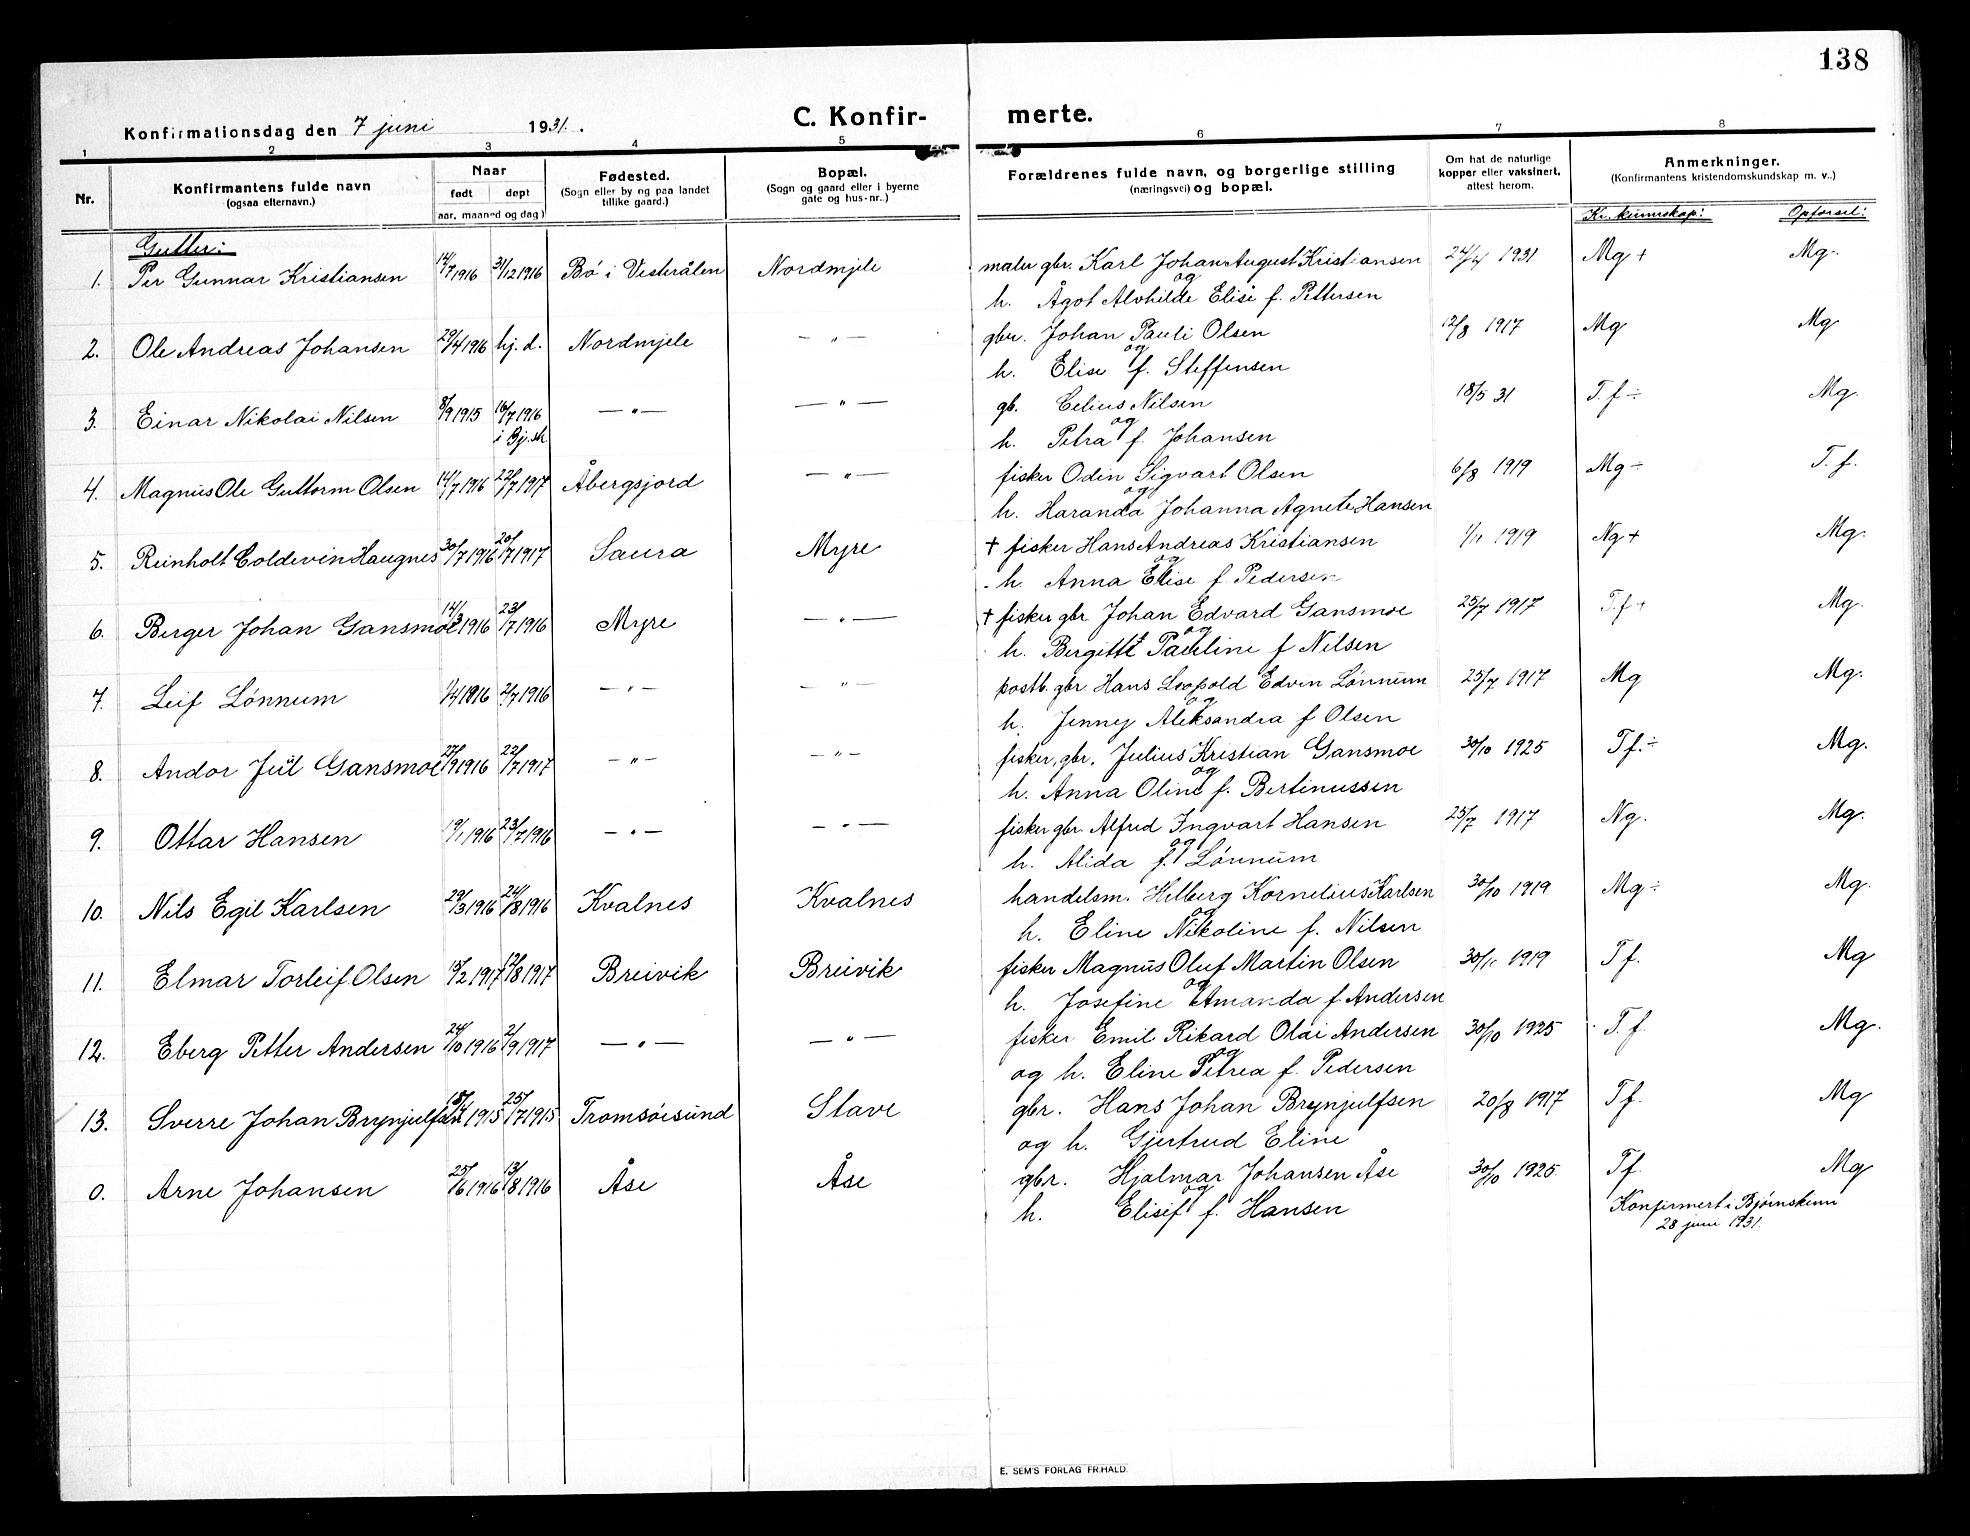 138
Konfirmationsdag den 7 juni 1931.
C. Konfirmerte.
1 2 3 4 5 6 7 8
Nr. Konfirmantens fulde navn (ogsaa efternavn.) Naar født døpt aar, maaned og dag) Fødested. (Sogn eller by og paa landet tillike gaard.) Bopæl. (Sogn og gaard eller i byerne gate og hus-nr.) Forældrenes fulde navn, og borgerlige stilling (næringsvei) og bopæl. Om hat de naturlige kopper eller vaksinert, attest herom. Anmerkninger. (Konfirmantens kristendomskundskap m. v..)
Kr. kunnskap: Opførsel:
Gutter:
1. Per Gunnar Kristiansen 14/7 1916 31/12 1916 Bø i Vesterålen Nordmjele maler gbr. Karl Johan August Kristiansen 24/4 1931 Mg + Mg.
og
h. Ågot Alvhilde Elise f. Pettersen
2. Ole Andreas Johansen 29/4 1916 hj. d. Nordmjele — " — gbr. Johan Pauli Olsen 12/8 1917 Mg Mg
og
h. Elise f. Steffensen
3. Einar Nikolai Nilsen 8/9 1915 16/7 1916 i Bj.sk. — " — — " — gb. Celius Nilsen 18/5 31 T. f ÷ Mg.
og
h. Petra f. Johansen
4. Magnus Ole Guttorm Olsen 14/7 1916 22/7 1917 Åbergsjord — " — fisker Odin Sigvart Olsen 6/8 1919 Mg ÷ T. f.
og
h. Haranda Johanna Agnete Hansen
5. Reinholt Coldevin Haugnes 30/7 1916 20/7 1917 Saura Myre + fisker Hans Andreas Kristiansen 1/11 1919 Ng + Mg.
og
h. Anna Elise f. Pedersen
6. Berger Johan Gansmoe 14/3 1916 23/7 1916 Myre — " — + fisker gbr Johan Edvard Gansmoe 25/7 1917 T.f + Mg.
og
h. Bergitte Pauline f Nilsen
7. Leif Lønnum 1/4 1916 2/7 1916 — " — — " — postb. gbr. Hans Leopold Edvin Lønnum 25/7 1917 Mg Mg.
og
h. Jenney Aleksandra f Olsen
8. Andor Jul Gansmoe 27/9 1916 22/7 1917 — " — — " — fisker, gbr. Julius Kristian Gansmoe 30/10 1925 Tf. ÷ Mg.
og
h. Anna Oline f. Bertinussen
9. Ottar Hansen 19/1 1916 23/7 1916 — " — — " — fisker gbr. Alfred Ingvart Hansen 25/7 1917 Ng. Mg.
og
h. Alida f. Lønnum
10. Nils Egil Karlsen 29/3 1916 24/8 1916 Kvalnes Kvalnes handelsm. Helberg Kornelius Karlsen 30/10 1919 Mg ÷ Mg.
og
h. Eline Nikoline f. Nilsen
11. Elmar Torleif Olsen 15/2 1917 12/8 1917 Breivik Breivik fisker Magnus Oluf Martin Olsen 30/11 1919 T f. Mg
og
h. Josefine Amanda f Andersen
12. Eberg Petter Andersen 24/10 1916 2/9 1917 — " — — " — fisker Emil Rikard Olai Andersen 30/10 1925 T. f. Mg.
og
og h. Eline Petrea f. Pedersen
13. Sverre Johan Brynjulfsen 1915 25/7 1915 Tromsøisund Stave gbr. Hans Johan Brynjulfsen 20/8 1917 T f. Mg
og h. Gjertrud Eline
0. Arne Johansen 25/6 1916 13/8 1916 Åse Åse gbr. Hjalmar Johansen Åse 30/10 1925 Tf. Mg
og
h. Elisif f. Hansen
Konfirmert i Bjørnskinn
28 juni 1931.
E. SEM'S FORLAG FR.HALD.